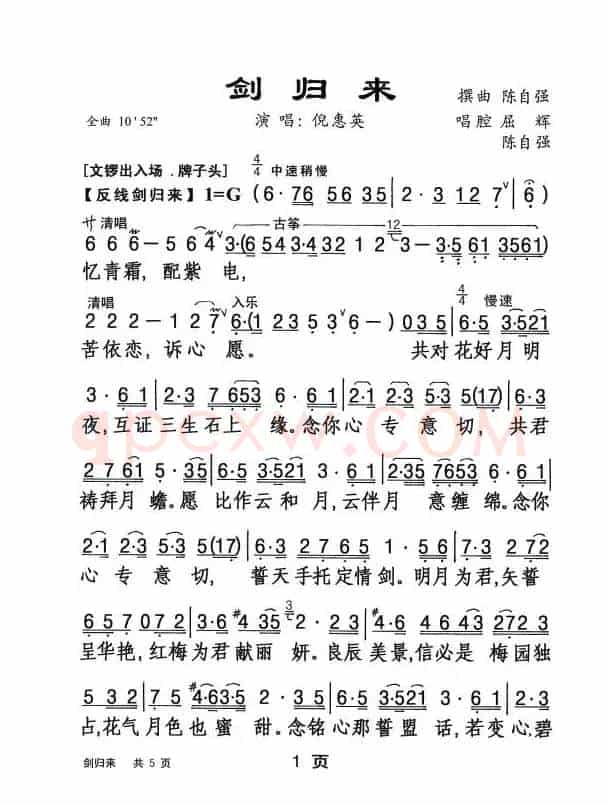 剑归来
撰曲 陈自强
全曲 10'52" 演唱:倪惠英 唱腔 屈辉
陈自强
[文锣出入场.牌子头] 4/4 中速稍慢
【反线剑归来】1=G (6·76 56 35 | 2·3 12 7 ∨ | 6)
サ清唱 古筝 12
6 6 6 – 5 6 4 ∨ 3·(6 543·4 32 1 2 – 3 – 3·5 61 3561)
忆青霜,配紫电,
清唱 入乐 4/4 慢速
2 2 2 – 1 2 7 ∨ 6·(1 2353 ∨ 6 –) 035 | 6·5 3·521
苦依恋,诉心愿。 共对花好月明
3·6 1 | 2·3 7 653 6·6 1 | 2·1 2·3 5·3 5(17) | 6·3
夜,互证三生石上缘。念你心专意切,共君
2 761 5·35 | 1·6 3·521 6·1 | 2·35 7653 6·6 1
祷拜月蟾。愿比作云和月,云伴月意缠绵。念你
2·1 2·3 5·3 5(17) | 6·3 2765 1·65 | 7·3 2·72
心专意切,誓天手托定情剑。明月为君,矢誓
657 072 | 6·3 #4 35 3 2·23 | 5·6 4643 272 3
呈华艳,红梅为君献丽妍。良辰美景,信必是梅园独
5·3 2 | 1 75 #4·635 2·35 | 3·2 1·2 3·6 | 5·6 2·2
占,花气月色也蜜甜。念铭心那誓盟话,若变心,碧
剑归来 共 5 页 1 页
gpcxw.COM